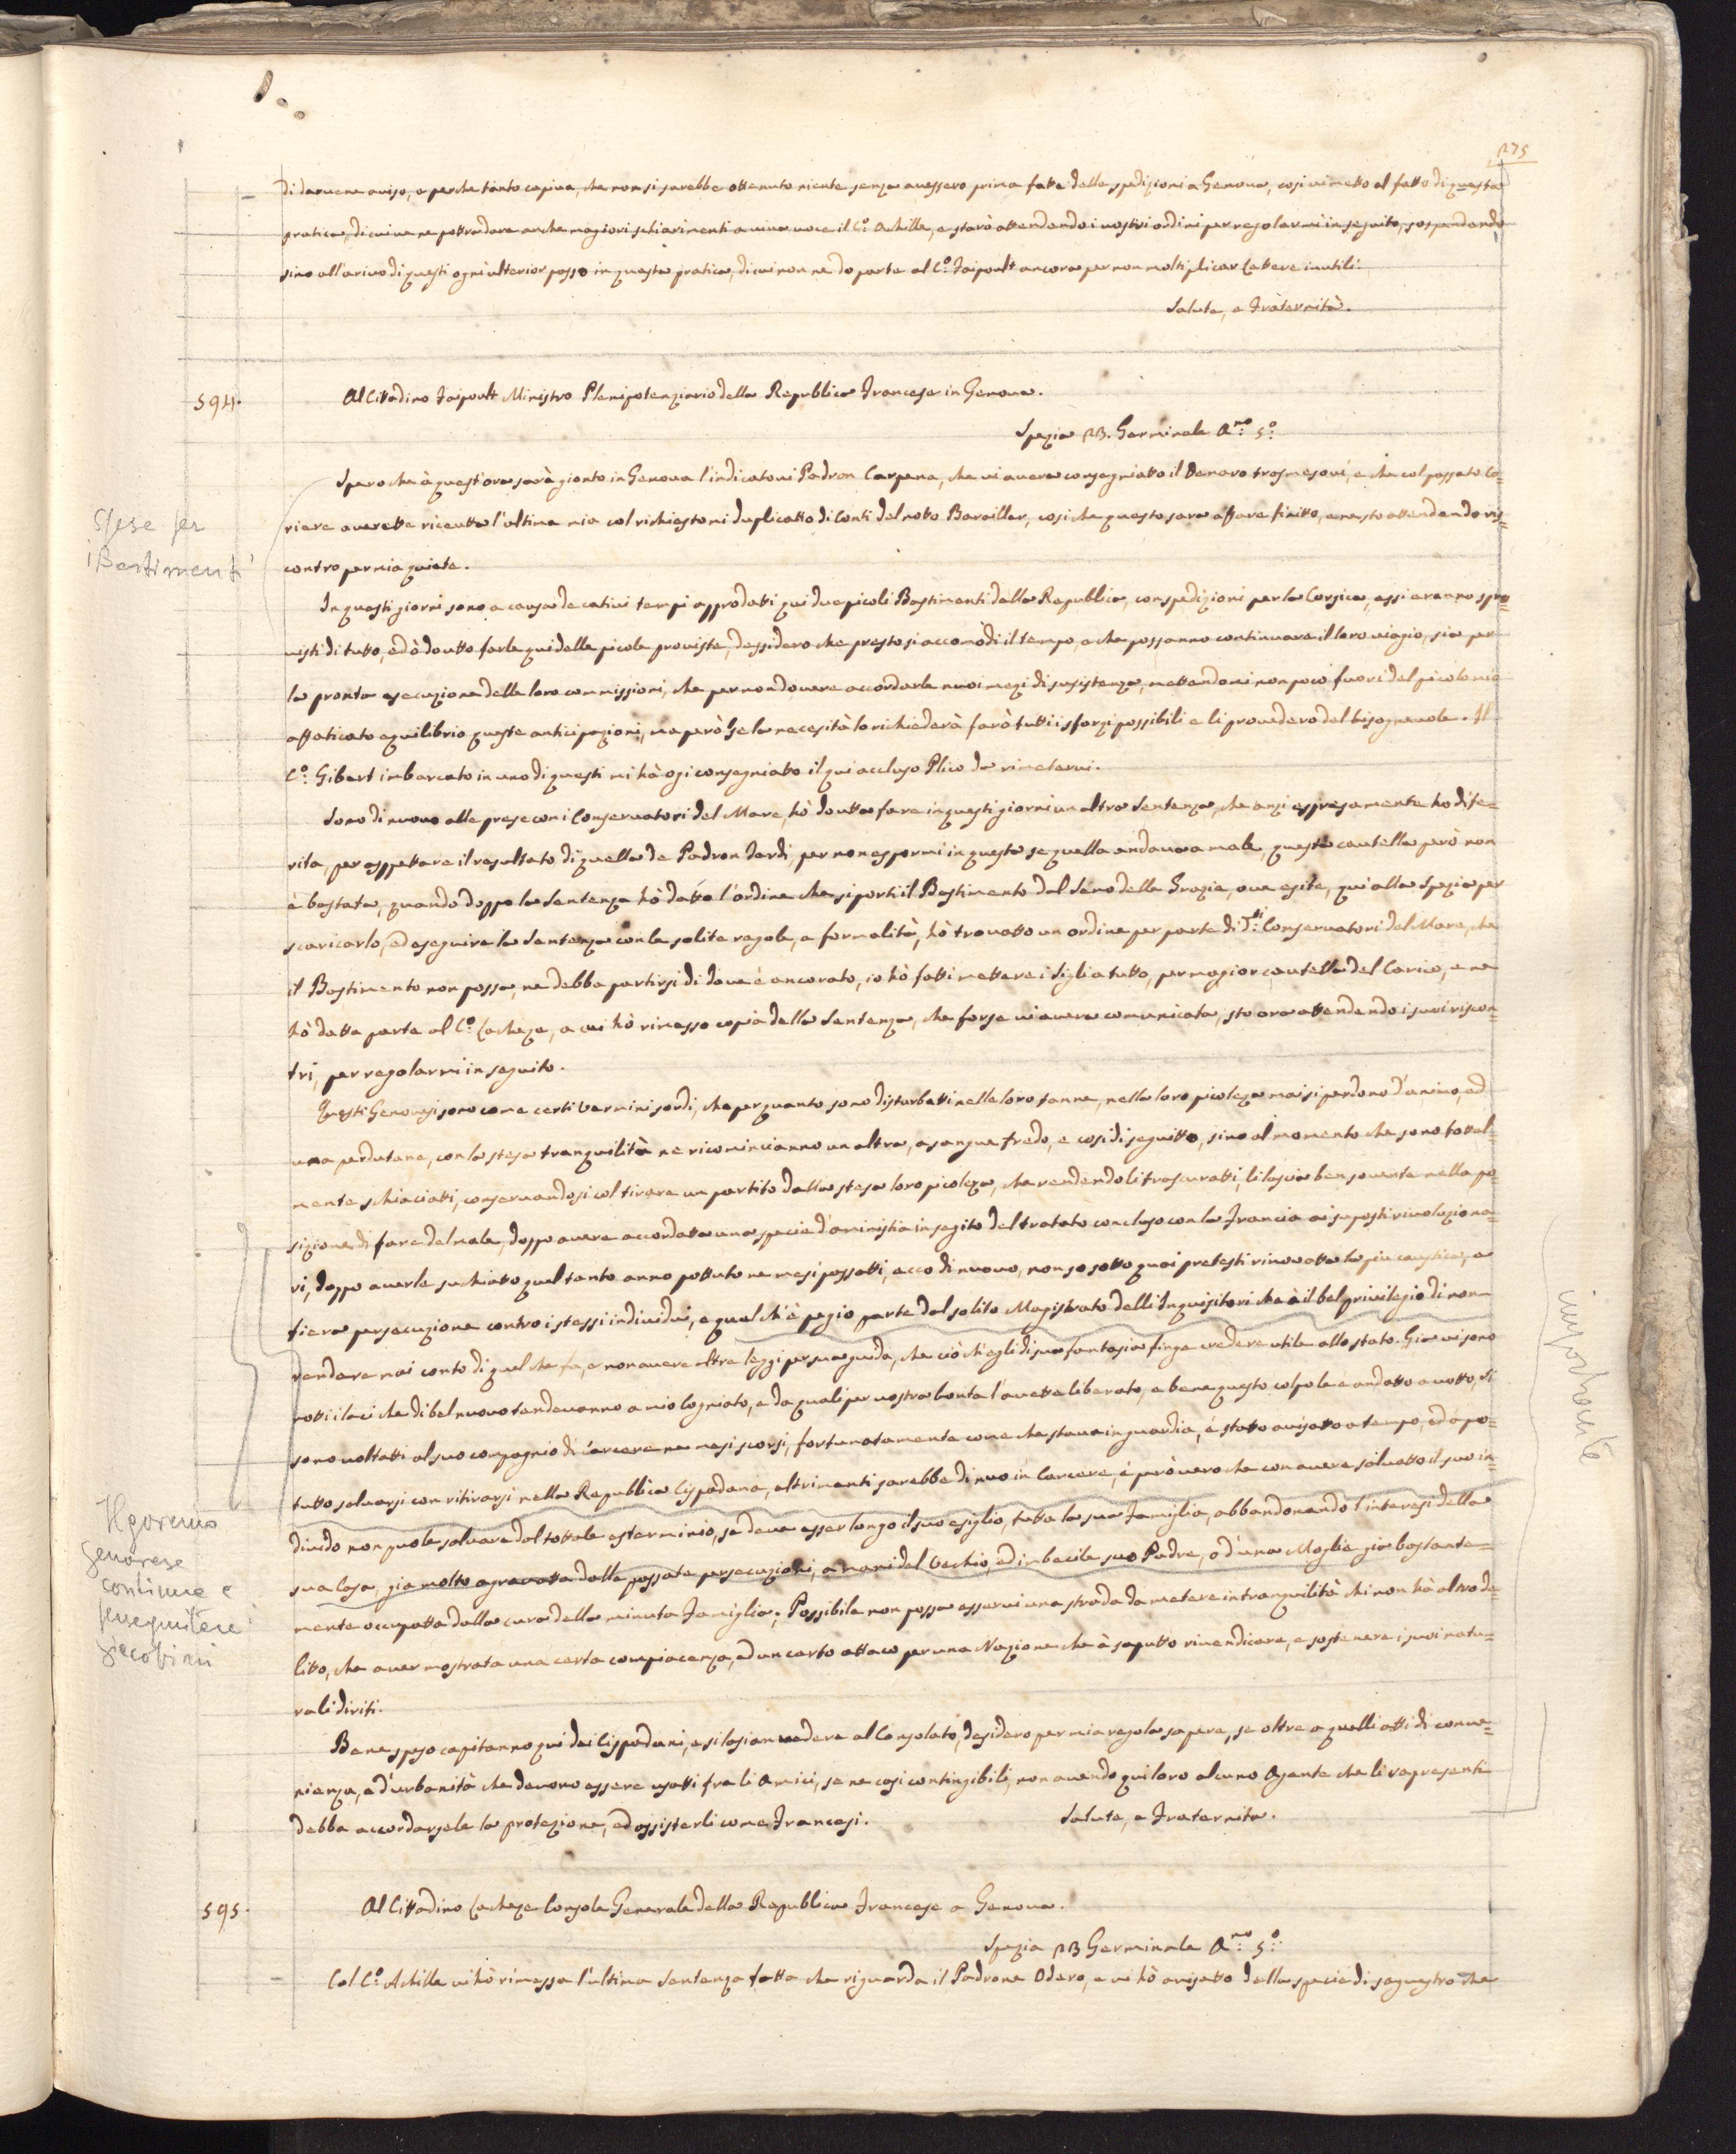 275
di darvene aviso, e perche tanto capiva, che non si sarebbe ottenuto niente senza avessero prima fatte delle spedizioni a Genova, cosi vi metto al fatto di questa
pratica, di cui ve ne pottra dare anche magiori schiarimenti a viva voce il C.º Achille, e starò attendendo i vostri ordini per regolarmi in seguito, sospendendo
sino all'arivo di questi ogni ulterior passo in questa pratica, di cui non ne do parte al C.º Faipoult ancora per non moltiplicar Lettere inutili.
Salute, e Fraternità.
594.
Al Cittadino Faipoult Ministro Plenipotenziario della Republica Francese in Genova.
Spezia 23. Germinale A.no 5.º
Spero che à quest'ora sarà gionto in Genova l'indicatovi Padron Carpena, che vi avera consegniatto il denaro trasmesovi, e che col passato Co=
riere averette riceutta l'ultima mia col richiestomi duplicatto di Conti del notto Barailler, cosi che questo sara affare finitto, e ne sto attendendo ris=
contro per mia quiete.
In questi giorni sono a causa de cativi tempi approdatti qui due picoli Bastimenti della Republica, con spedizioni per la Corsica, essi eranno spro=
visti di tutto, ed ò doutto farle qui delle picole proviste, dessidero che presto si accomòdi il tempo, e che possanno continuare il loro viagio, sia per
la pronta esecuzione delle loro commissioni, che per non dovere accordarle nuoi mezi di susistenza, mettendomi non poco fuori del picolo mio
affaticato equilibrio queste anticipazioni, ma però se la necesità lo richiederà farò tutti i sforzi possibili e li provedero del bisognevole. Il
C.º Gibert imbarcato in uno di questi mi hà ogi consegniatto il qui accluso Plico da rimetervi.
Sono di nuovo alle prese con i Conservatori del Mare, hò doutta fare in questi giorni un altra Sentenza, che anzi espresamente ho dife=
rita, per asppettare il resultato di quella de Padron Jardi, per non espormi in questa se quella andava a male, questa cautella però non
è bastata, quando doppo la Sentenza hò datto l'ordine che si porti il Bastimento dal Seno della Grazie, ove esite, qui alla Spezia per
scaricarlo, ed eseguire la Sentenza con le solite regole, e formalità, hò trovatto un ordine per parte di d.ti Conservatori del Mare, che
il Bastimento non possa, ne debba partirsi di dove è ancorato, io hò fatti mettere i Sigli a tutto, per magior cautella del Carico, e ne
hò datta parte al C.º Lacheze, a cui hò rimesso copia della Sentenza, che forse vi avera comunicata, sto ora attendendo i suoi riscon=
tri, per regolarmi in seguito.
Questi Genovesi sono come certi vermini sordi, che per quanto sono disturbatti nelle loro tanne, nella loro picoleza mai si perdono d'animo, ed
una perdutane, con la stesa tranquilità ne ricomincianno un altra, a sangue fredo, e cosi di seguitto, sino al momento che sono tottal=
mente schiaciatti, conservandosi col tirare un partito dalla stesa loro picoleza, che rendendoli trascuratti, li lascia ben sovente nella po=
sizione di fare del male, doppo avere accordatta una specie d'aministia in segito del tratato concluso con la Francia ai suposti rivoluziona=
ri, doppo averle suchiatto quel tanto anno pottuto ne mesi passatti, ecco di nuovo, non so sotto quai pretesti rinovatta la piu caustica, e
fiera persecuzione contro i stessi individui, e quel ch'è pegio parte dal solito Magistrato delli Inquisitori che à il bel privilegio di non
rendere mai conto di quel che fa, e non avere altre leggi per sua guida, che ciò ch'egli di sua fantasia finge credere utile allo stato. Gia vi sono
notti i laci che di bel nuovo tendevanno a mio Cogniato, e da quali per vostra bonta l'avette liberato, e bene questo colpo le è andatto a votto, si
sono voltatti al suo compagnio di Carcere ne mesi scorsi, fortunatamente come che stava in guardia, è statto avisatto a tempo, ed à po=
tutto salvarsi con ritirarsi nella Republica Cispadana, altrimenti sarebbe di nuo in Carcere, è però vero che con avere salvatto il suo in=
dividuo non puole salvare dal tottale esterminio, se deve esser longo il suo esiglio, tutta la sua Famiglia, abbandonando l'interesi della
sua Casa, gia molto agravatta dalle passate persecuzioni, a mani del Vechio, ed imbecile suo Padre, o d'una Moglie gia bastante=
mente occupatta dalla cura della minuta Famiglia; Possibile non possa esservi una strada da metere in tranquilità chi non hà altro de=
litto, che aver mostrata una certa compiacenza, ed un certo attaco per una Nazione che à saputto rivendicare, e sostenere i suoi natu=
rali diriti.
Bene speso capitanno qui dei Cispadani, e si lasian vedere al Consolato, desidero per mia regola sapere, se oltre a quelli atti di conve=
nienza, e d'urbanità che devono essere usatti fra li Amici, se ne casi contingibili, non avendo qui loro alcuno Agente che li rapresenti
debba accordarsele la protezione, ed assisterli come Francesi.
Salute, e Fraternita.
595.
Al Cittadino Lacheze Console Generale della Republica Francese a Genova.
Spezia 23 Germinale A.no 5.º
Col C.º Achille vi hò rimessa l'ultima Sentenza fatta che riguarda il Padrone Odero, e vi hò avisatto della specie di sequestro che
Spese per
i Bastimenti
Il governo
Genovese
continua a
perseguitare i
giacobini
importante